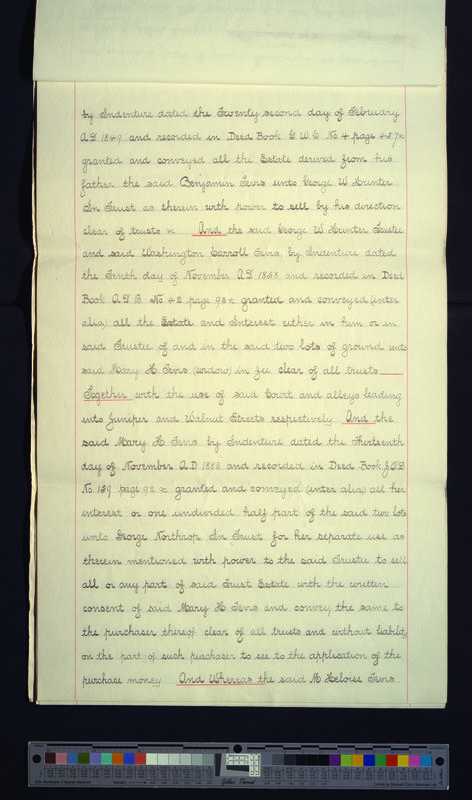 by Indenture dated the Twenty second day of February
A.D 1849 and recorded in Deed Book G W C No 4 page 487 &c
granted and conveyed all the Estate derived from his
father the said Benjamin Tevis unto George W Hunter
In Trust as therein with power to sell by his direction
clear of trusts &c And the said George W Hunter Trustee
and said Washington Carroll Tevis by Indenture dated
the Tenth day of November A.D 1858 and recorded in Deed
Book A.D.B No 42 page 92 &c granted and conveyed (inter
alia) all the Estate and Interest either in him or in
said Trustee of and in the said two lots of ground unto
said Mary H. Tevis (widow) in fee clear of all trusts
Together with the use of said Court and alleys leading
into Juniper and Walnut Streets respectively And the
said Mary H Tevis by Indenture dated the Thirteenth
day of November A.D. 1883 and recorded in Deed Book J.O.D.
No. 159 page 92 &c granted and conveyed (inter alia) all her
interest or one undivided half part of the said two lots
unto George Northrop In Trust for her separate use as
therein mentioned with power to the said Trustee to sell
all or any part of said Trust Estate with the written
consent of said Mary H Tevis and convey the same to
the purchaser thereof clear of all trusts and without liability
on the part of such purchaser to see to the application of the
purchase money And Whereas the said M Heloise Tevis